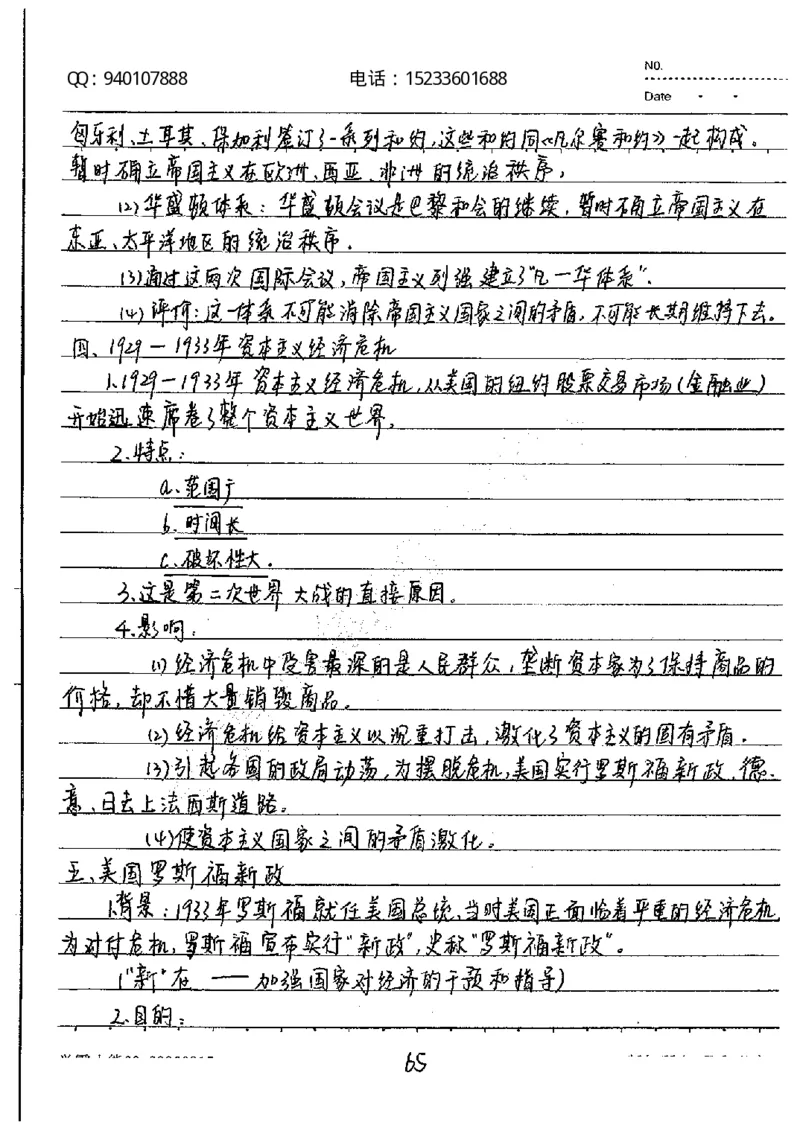 QQ：940107888
电话：15233601688
NO.
Date - -
匈牙利、土耳其、保加利签订了一系列和约,这些和约同《凡尔赛和约》一起构成。
暂时确立帝国主义在欧洲、西亚、非洲的统治秩序,
(2)华盛顿体系：华盛顿会议是巴黎和会的继续,暂时确立帝国主义在
东亚、太平洋地区的统治秩序.
(3)通过这两次国际会议,帝国主义列强建立了"凡一华体系".
(4)评价:这一体系不可能消除帝国主义国家之间的矛盾,不可能长期维持下去。
四、1929—1933年资本主义经济危机
1.1929—1933年资本主义经济危机,从美国的纽约股票交易市场(金融业)
开始迅速席卷了整个资本主义世界,
2.特点：
a.范围广
b.时间长
c.破坏性大.
3.这是第二次世界大战的直接原因。
4.影响：
(1)经济危机中受害最深的是人民群众,垄断资本家为了保持商品的
价格,却不惜大量销毁商品。
(2)经济危机给资本主义以沉重打击,激化了资本主义的固有矛盾.
(3)引起各国的政局动荡,为摆脱危机,美国实行罗斯福新政,德、
意、日去上法西斯道路。
(4)使资本主义国家之间的矛盾激化。
五、美国罗斯福新政
1.背景：1933年罗斯福就任美国总统、当时美国正面临着严重的经济危机,
为对付危机,罗斯福宣布实行"新政",史称"罗斯福新政"。
("新"在——加强国家对经济的干预和指导)
2.目的：
65